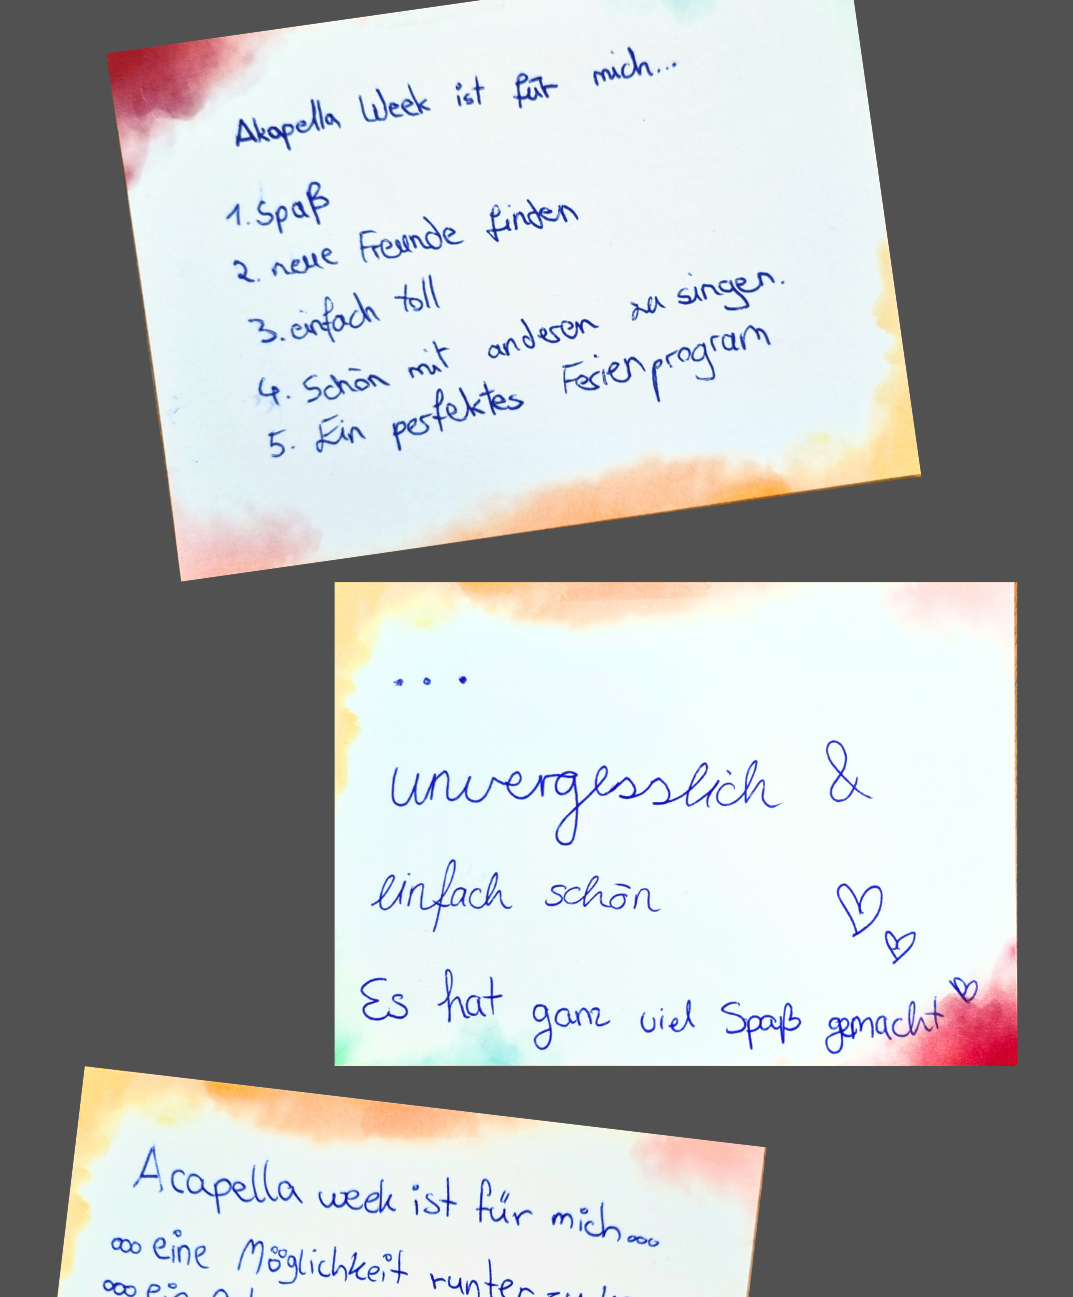 Akapella Week ist für mich...
1. Spaß
2. neue Freunde finden
3. einfach toll
4. Schön mit anderen zu singen.
5. Ein perfektes Ferienprogram
...
unvergesslich &
einfach schön
Es hat ganz viel Spaß gemacht
Acapella week ist für mich...
... eine Möglichkeit runter
... ein